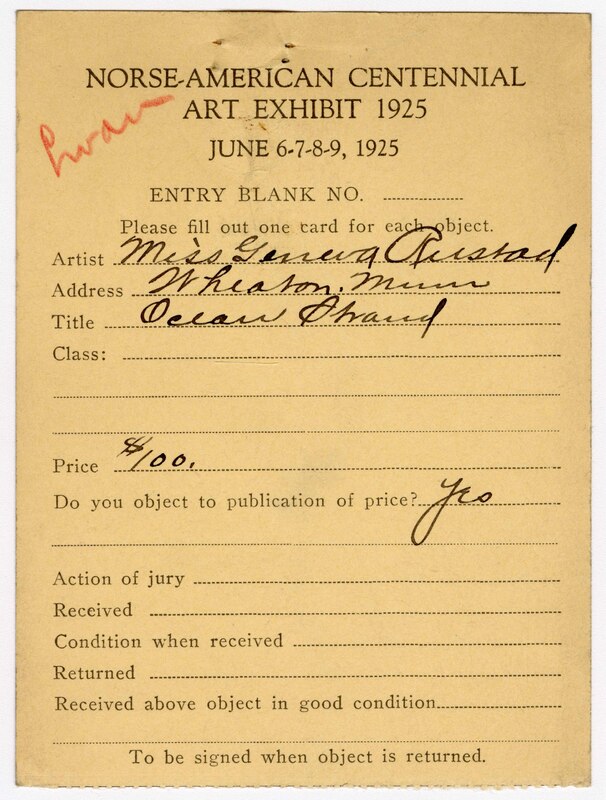 NORSE-AMERICAN CENTENNIAL
ART EXHIBIT 1925
JUNE 6-7-8-9, 1925
ENTRY BLANK NO.
Please fill out one card for each object.
Artist Miss Geneva Rustad
Address Wheaton, Minn
Title Ocean Strand
Class:
Price $100.
Do you object to publication of price? Yes
Action of jury
Received
Condition when received
Returned
Received above object in good condition
To be signed when object is returned.